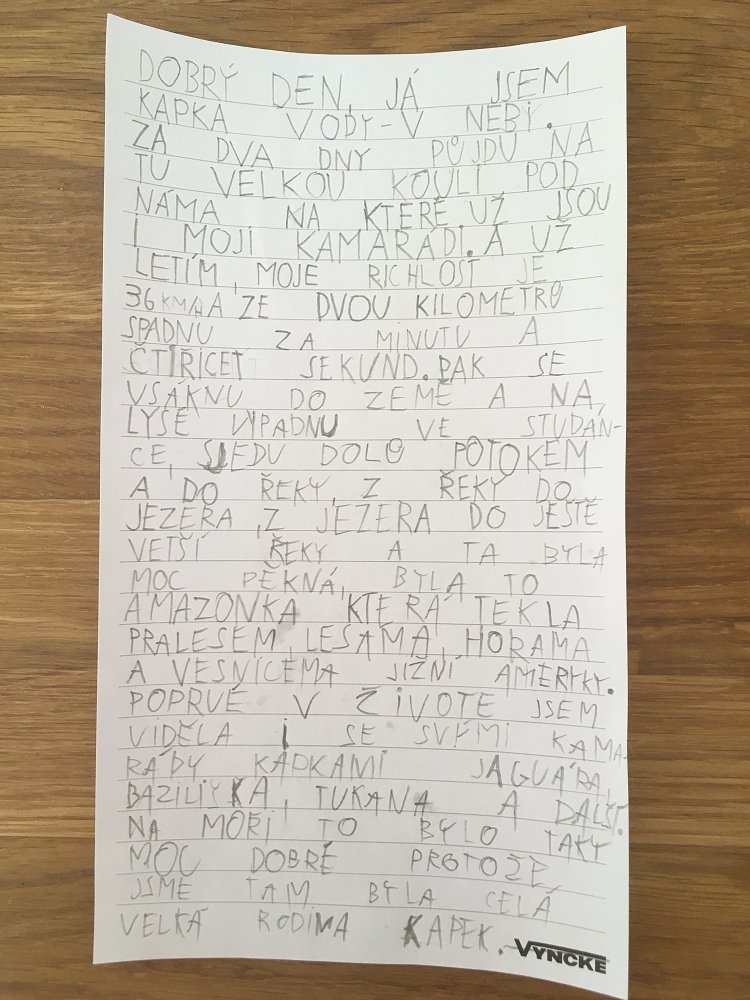 DOBRÝ DEN, JÁ JSEM
KAPKA VODY-V NEBI.
ZA DVA DNY PŮJDU NA
TU VELKOU KOULI POD
NÁMA NA KTERÉ UŽ JSOU
I MOJI KAMARÁDI. A UŽ
LETÍM, MOJE RICHLOST JE
36 KM/H A ZE DVOU KILOMETRŮ
SPADNU ZA MINUTU A
ČTIŘICET SEKUND. PAK SE
VSÁKNU DO ZEMĚ A NA
LYSÉ VIPADNU VE STUDÁN-
CE, SJEDU DOLŮ POTOKEM
A DO ŘEKY, Z ŘEKY DO
JEZERA, Z JEZERA DO JEŠTĚ
VETŠÍ ŘEKY A TA BYLA
MOC PĚKNÁ, BYLA TO
AMAZONKA KTERÁ TEKLA
PRALESEM, LESAMA, HORAMA
A VESNICEMA JIŽNÍ AMERYKY.
POPRVÉ V ŽIVOTE JSEM
VIDĚLA I SE SVÝMI KAMA-
RÁDY KAPKAMI JAGUÁRA,
BAZILIŠKA, TUKANA A DALŠÍ.
NA MOŘI TO BYLO TAKY
MOC DOBRÉ PROTOŽE
JSME TAM BYLA CELÁ
VELKÁ RODINA KAPEK.
VYNCKE